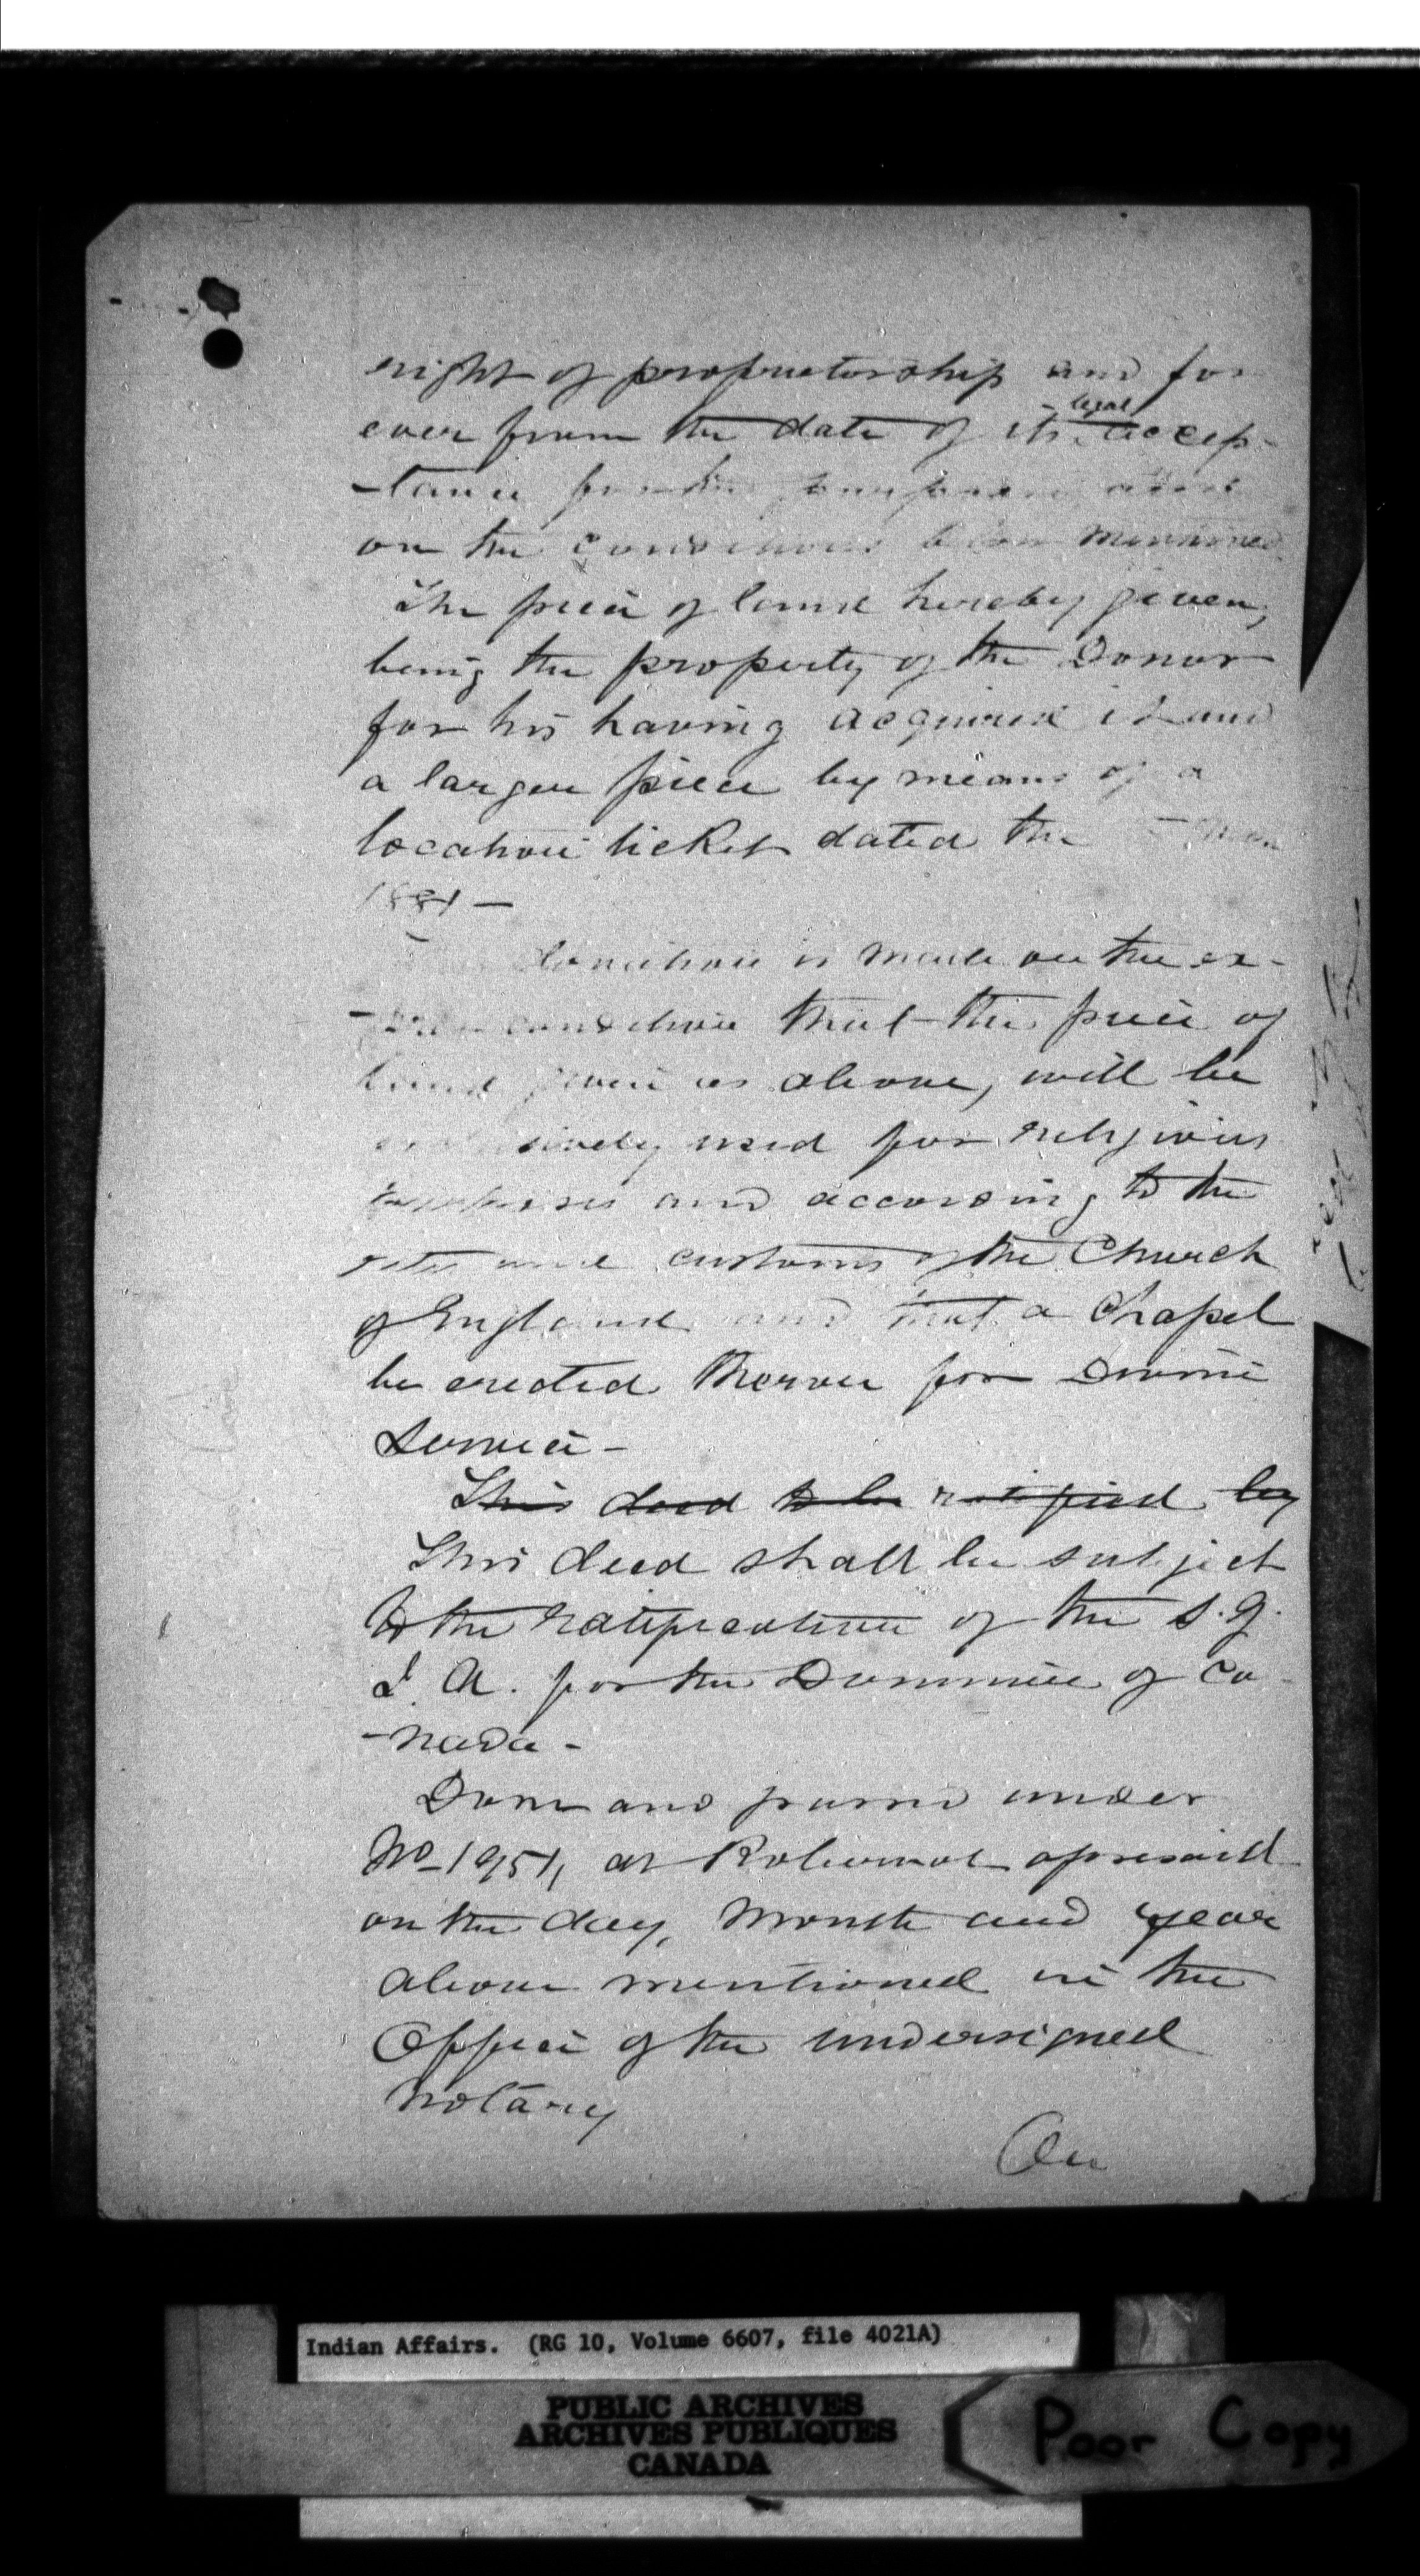 right of proprietorship and for
legal
ever from the date of its accep-
-tance for the
on the conditions below mentioned.
The piece of land hereby given,
being the property of the Donor
for his having acquired it and
a larger piece by means of a
location ticket dated the
1881 —
donation is made on the ex-
condition that the piece of
land given as above, will be
used for religious
purposes and according to the
rites and customs of the Church
of England and that a Chapel
be erected thereon for Divine
Service -
This deed to be ratified by
This deed shall be subject
to the ratification of the S. G.
I. A. for the Dominion of Ca-
-nada -
Done and passed under
No 1951, at Roberval aforesaid
on the day, month and year
above mentioned in the
Office of the undersigned
Notary
On
Indian Affairs. (RG 10, Volume 6607, file 4021A)
PUBLIC ARCHIVES
ARCHIVES PUBLIQUES
CANADA
Poor Copy